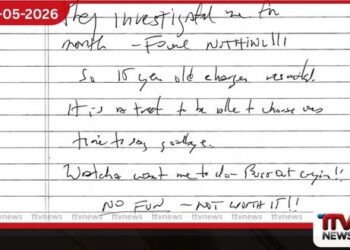 -05-2026
They investigated me for
month - Found NOTHING!!!
So 15 year old charges resulted.
It is a treat to be able to choose
time to say goodbye.
Watcha want me to do - Burst out cryin!!
NO FUN - NOT WORTH IT!!
ttvnews ttvnews ttvnews ttvnews ttvnews
TTV
NEWS